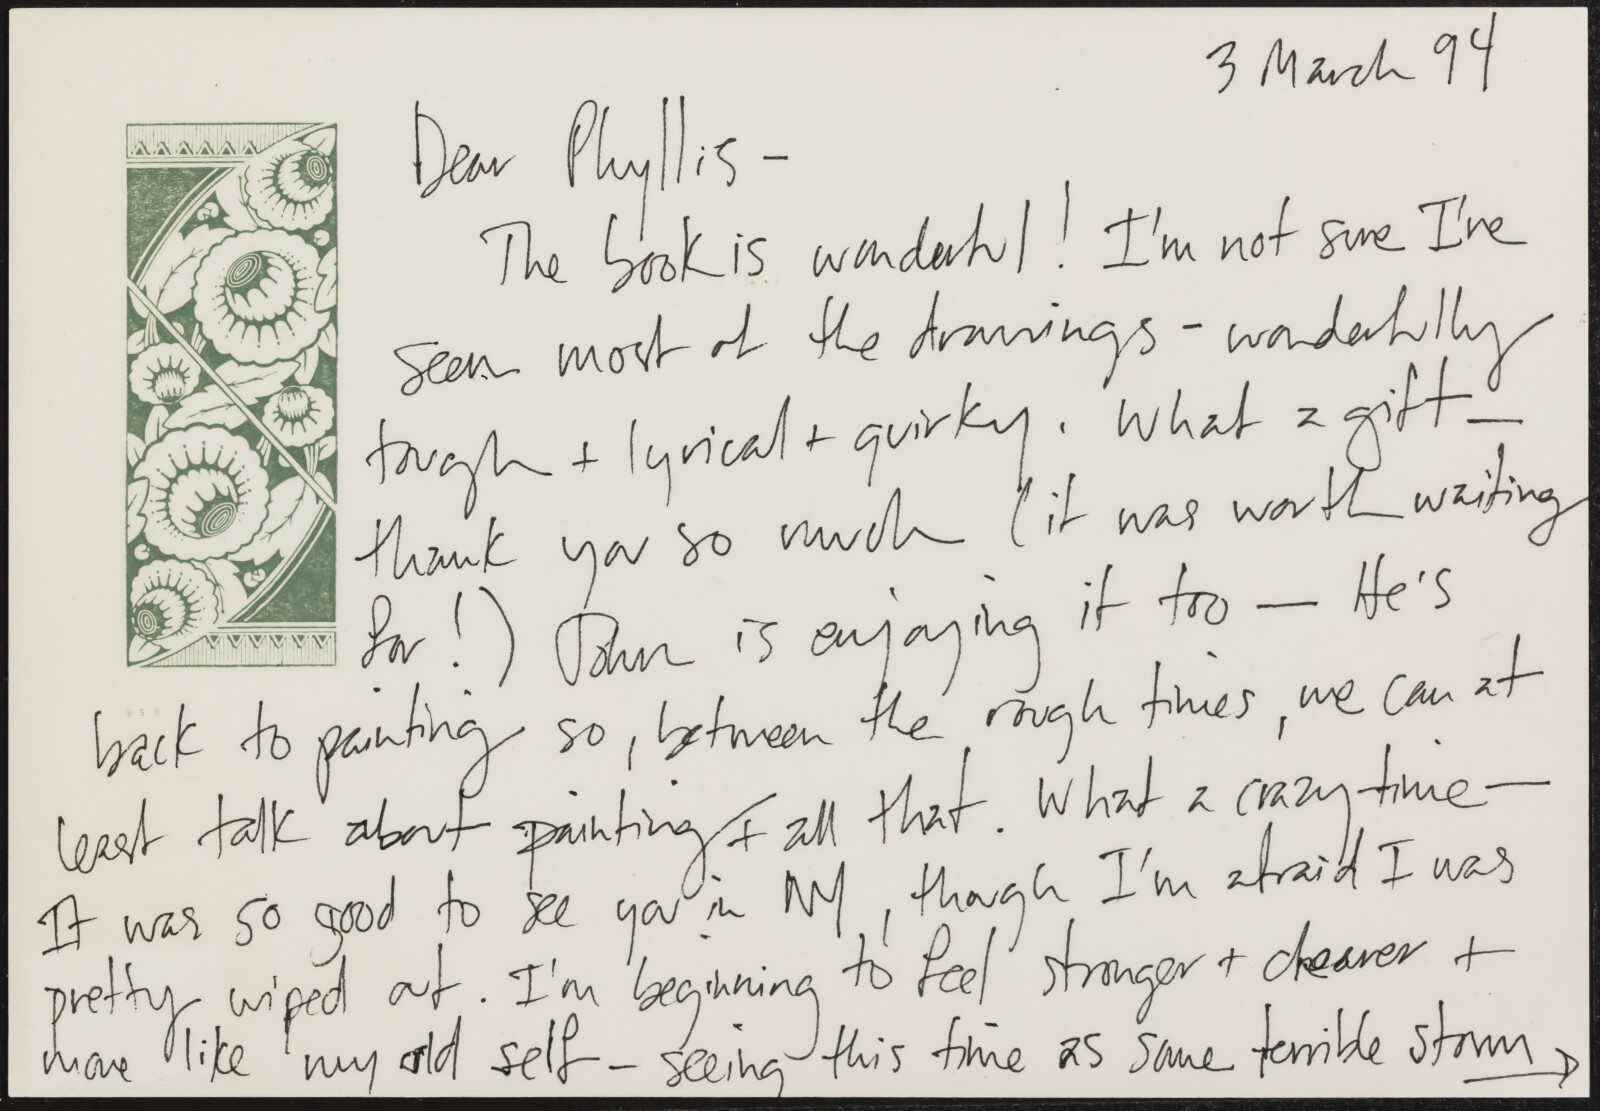 3 March 94
Dear Phyllis -
The book is wonderful! I'm not sure I've
seen most of the drawings - wonderfully
tough + lyrical + quirky. What a gift —
thank you so much (it was worth waiting
for!) John is enjoying it too — He's
back to painting so, between the rough times, we can at
least talk about painting + all that. What a crazy time —
It was so good to see you in NY, though I'm afraid I was
pretty wiped out. I'm beginning to feel stronger + clearer +
more like my old self - seeing this time as some terrible storm →